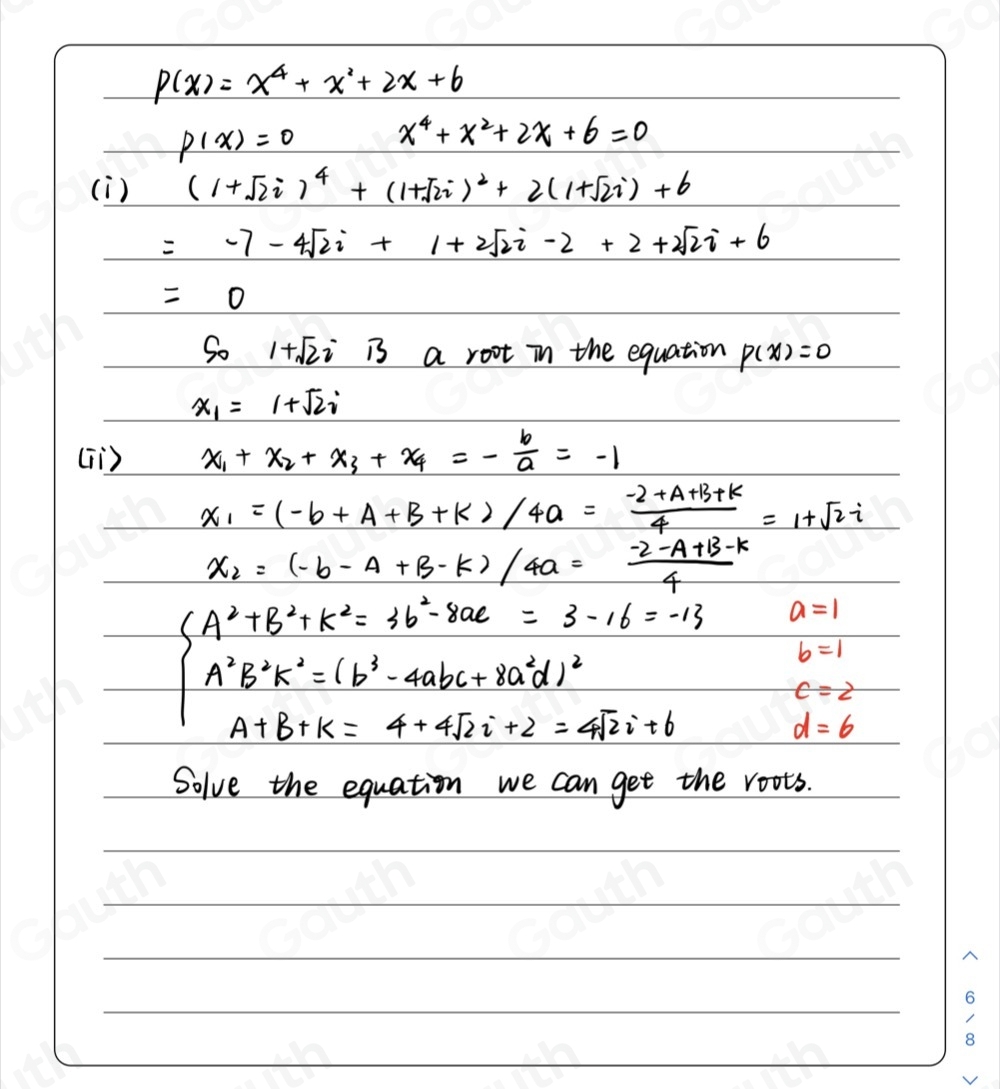 p(x) = x⁴ + x² + 2x + 6
p(x) = 0 x⁴ + x² + 2x + 6 = 0
(i) (1+√2i)⁴ + (1+√2i)² + 2(1+√2i) + 6
= -7 - 4√2i + 1 + 2√2i - 2 + 2 + 2√2i + 6
= 0
So 1+√2i is a root in the equation p(x)=0
x₁ = 1+√2i
(ii) x₁ + x₂ + x₃ + x₄ = - b/a = -1
x₁ = (-b + A + B + K) / 4a = (-2+A+B+K)/4 = 1+√2i
x₂ = (-b - A + B - K) / 4a = (-2-A+B-K)/4
{ A² + B² + K² = 3b² - 8ac = 3 - 16 = -13 a = 1
A²B²K² = (b³ - 4abc + 8a²d)² b = 1
c = 2
A + B + K = 4 + 4√2i + 2 = 4√2i + 6 d = 6
Solve the equation we can get the roots.
Gauth
6
/
8